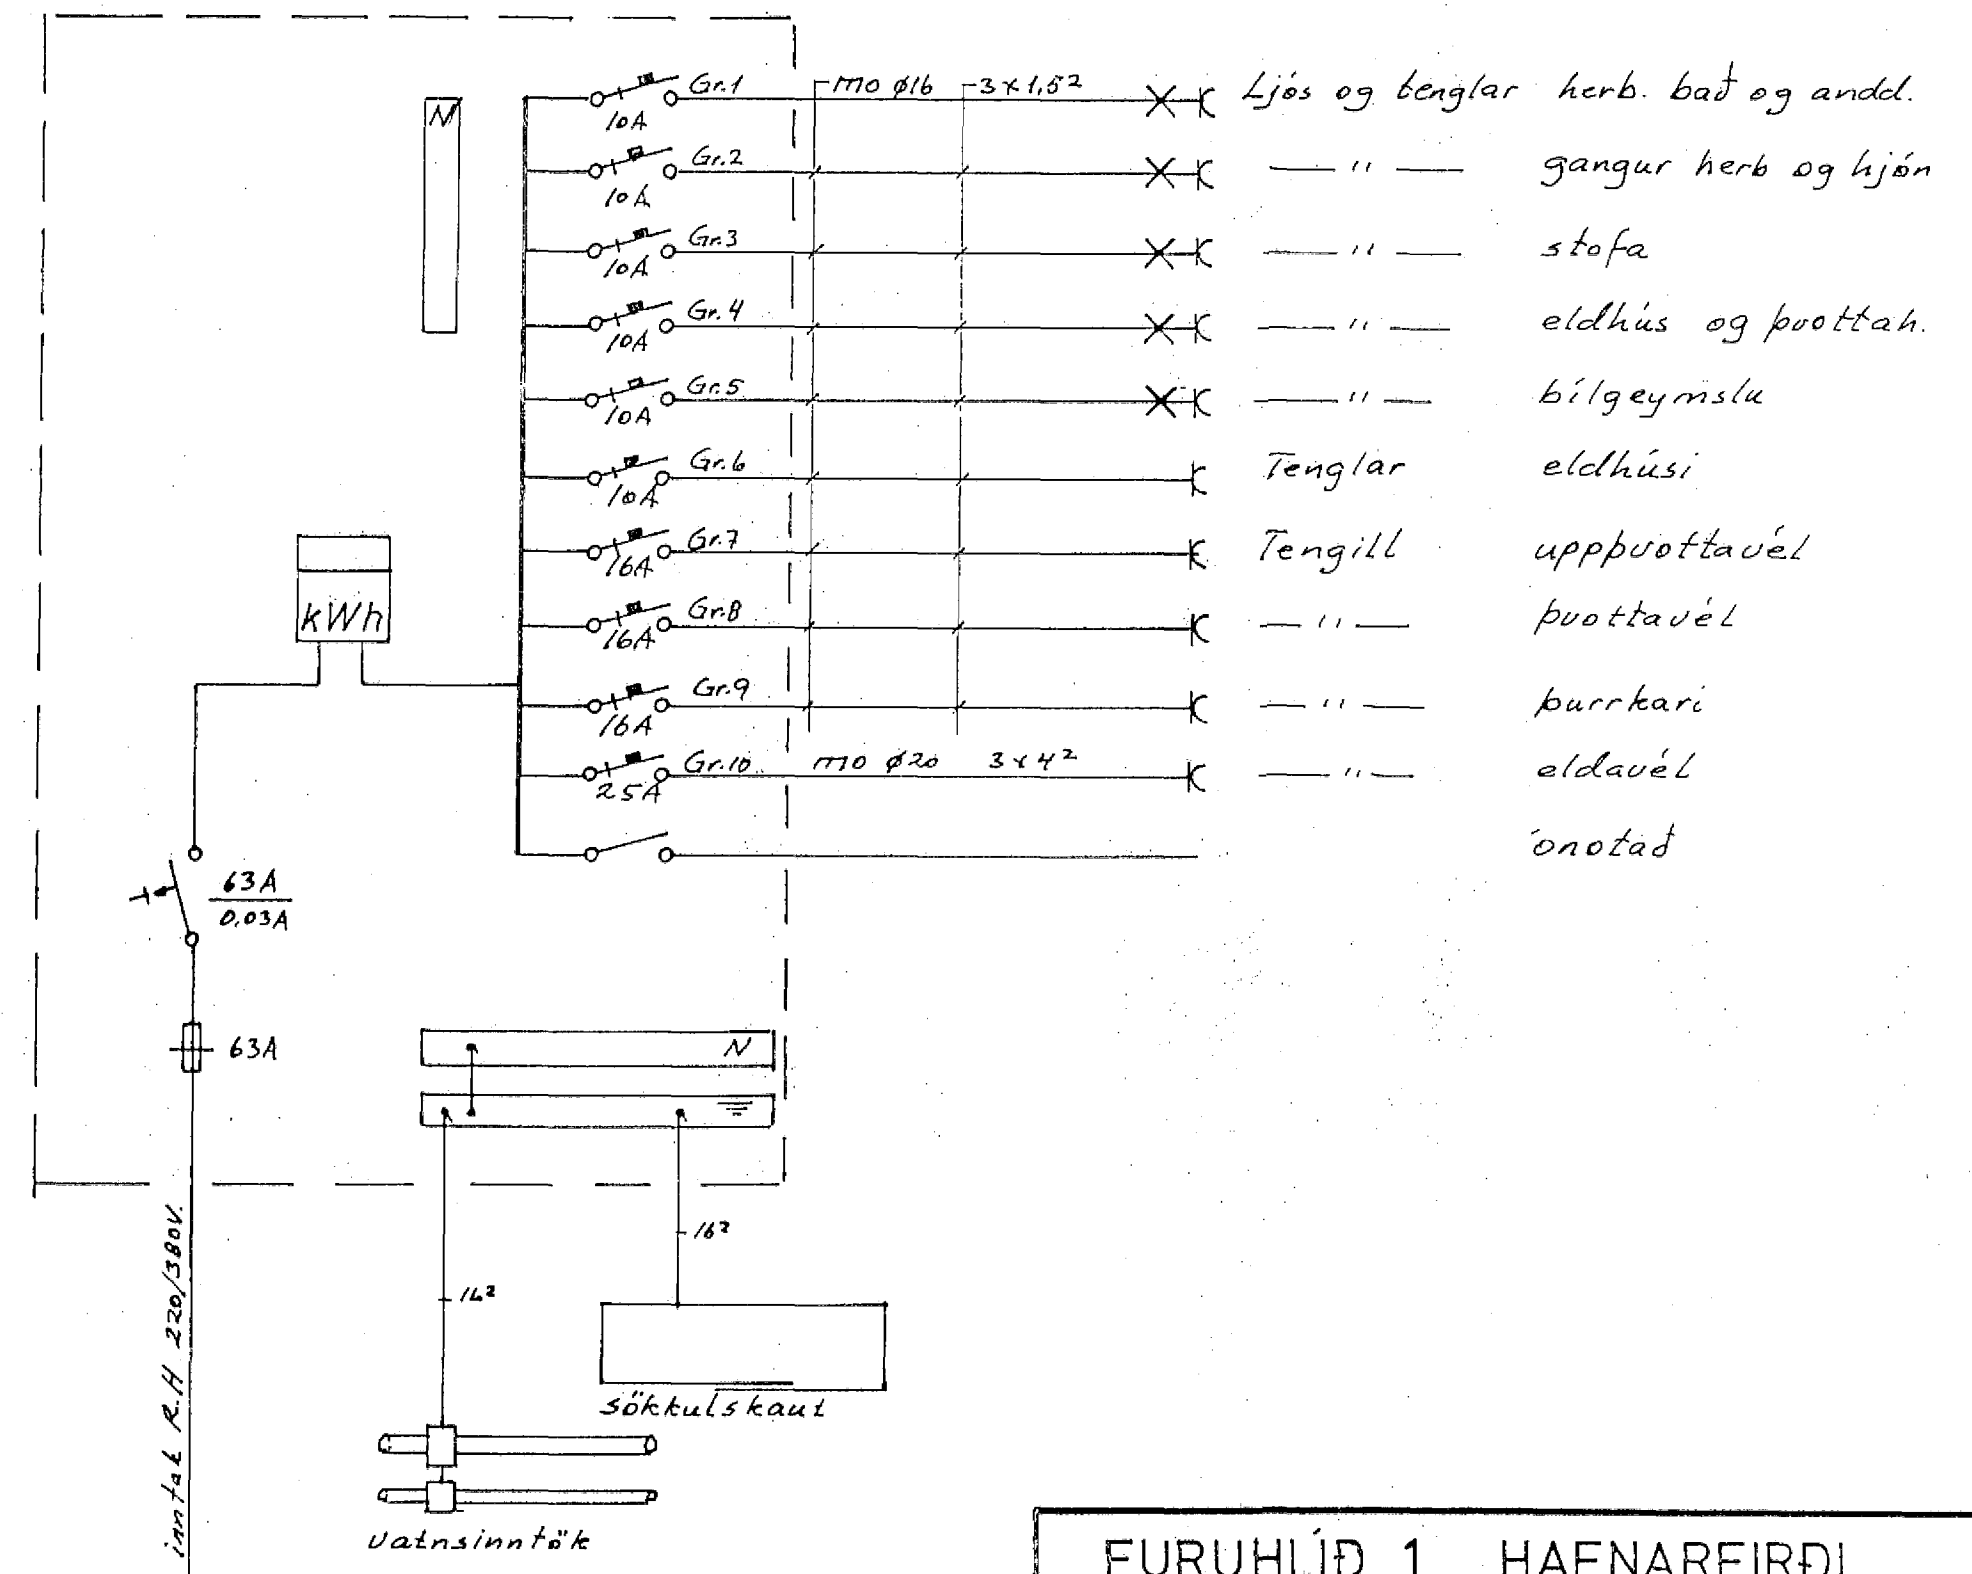 N
Gr.1 10A MO ø16 3x1,5² Ljós og tenglar herb. bað og andd.
Gr.2 10A — " — gangur herb og hjón
Gr.3 10A — " — stofa
Gr.4 10A — " — eldhús og þvottah.
Gr.5 10A — " — bílgeymslu
Gr.6 10A Tenglar eldhúsi
Gr.7 16A Tengill uppþvottavél
kWh
Gr.8 16A — " — þvottavél
Gr.9 16A — " — þurrkari
Gr.10 25A MO ø20 3x4² — " — eldavél
ónotað
63A
0,03A
63A
N
16²
16²
inntak R.H 220/380V.
sökkulskaut
vatnsinntök
FURUHLÍÐ 1 HAFNARFIRÐI